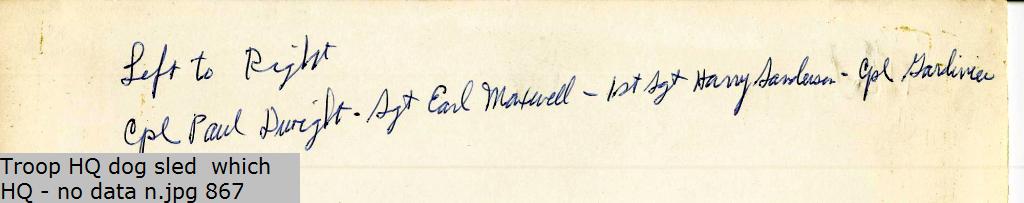 Left to Right
Cpl Paul Dwight - Sgt Earl Maxwell - 1st Sgt Harry Sanderson - Cpl Gardinier
Troop HQ dog sled which
HQ - no data n.jpg 867